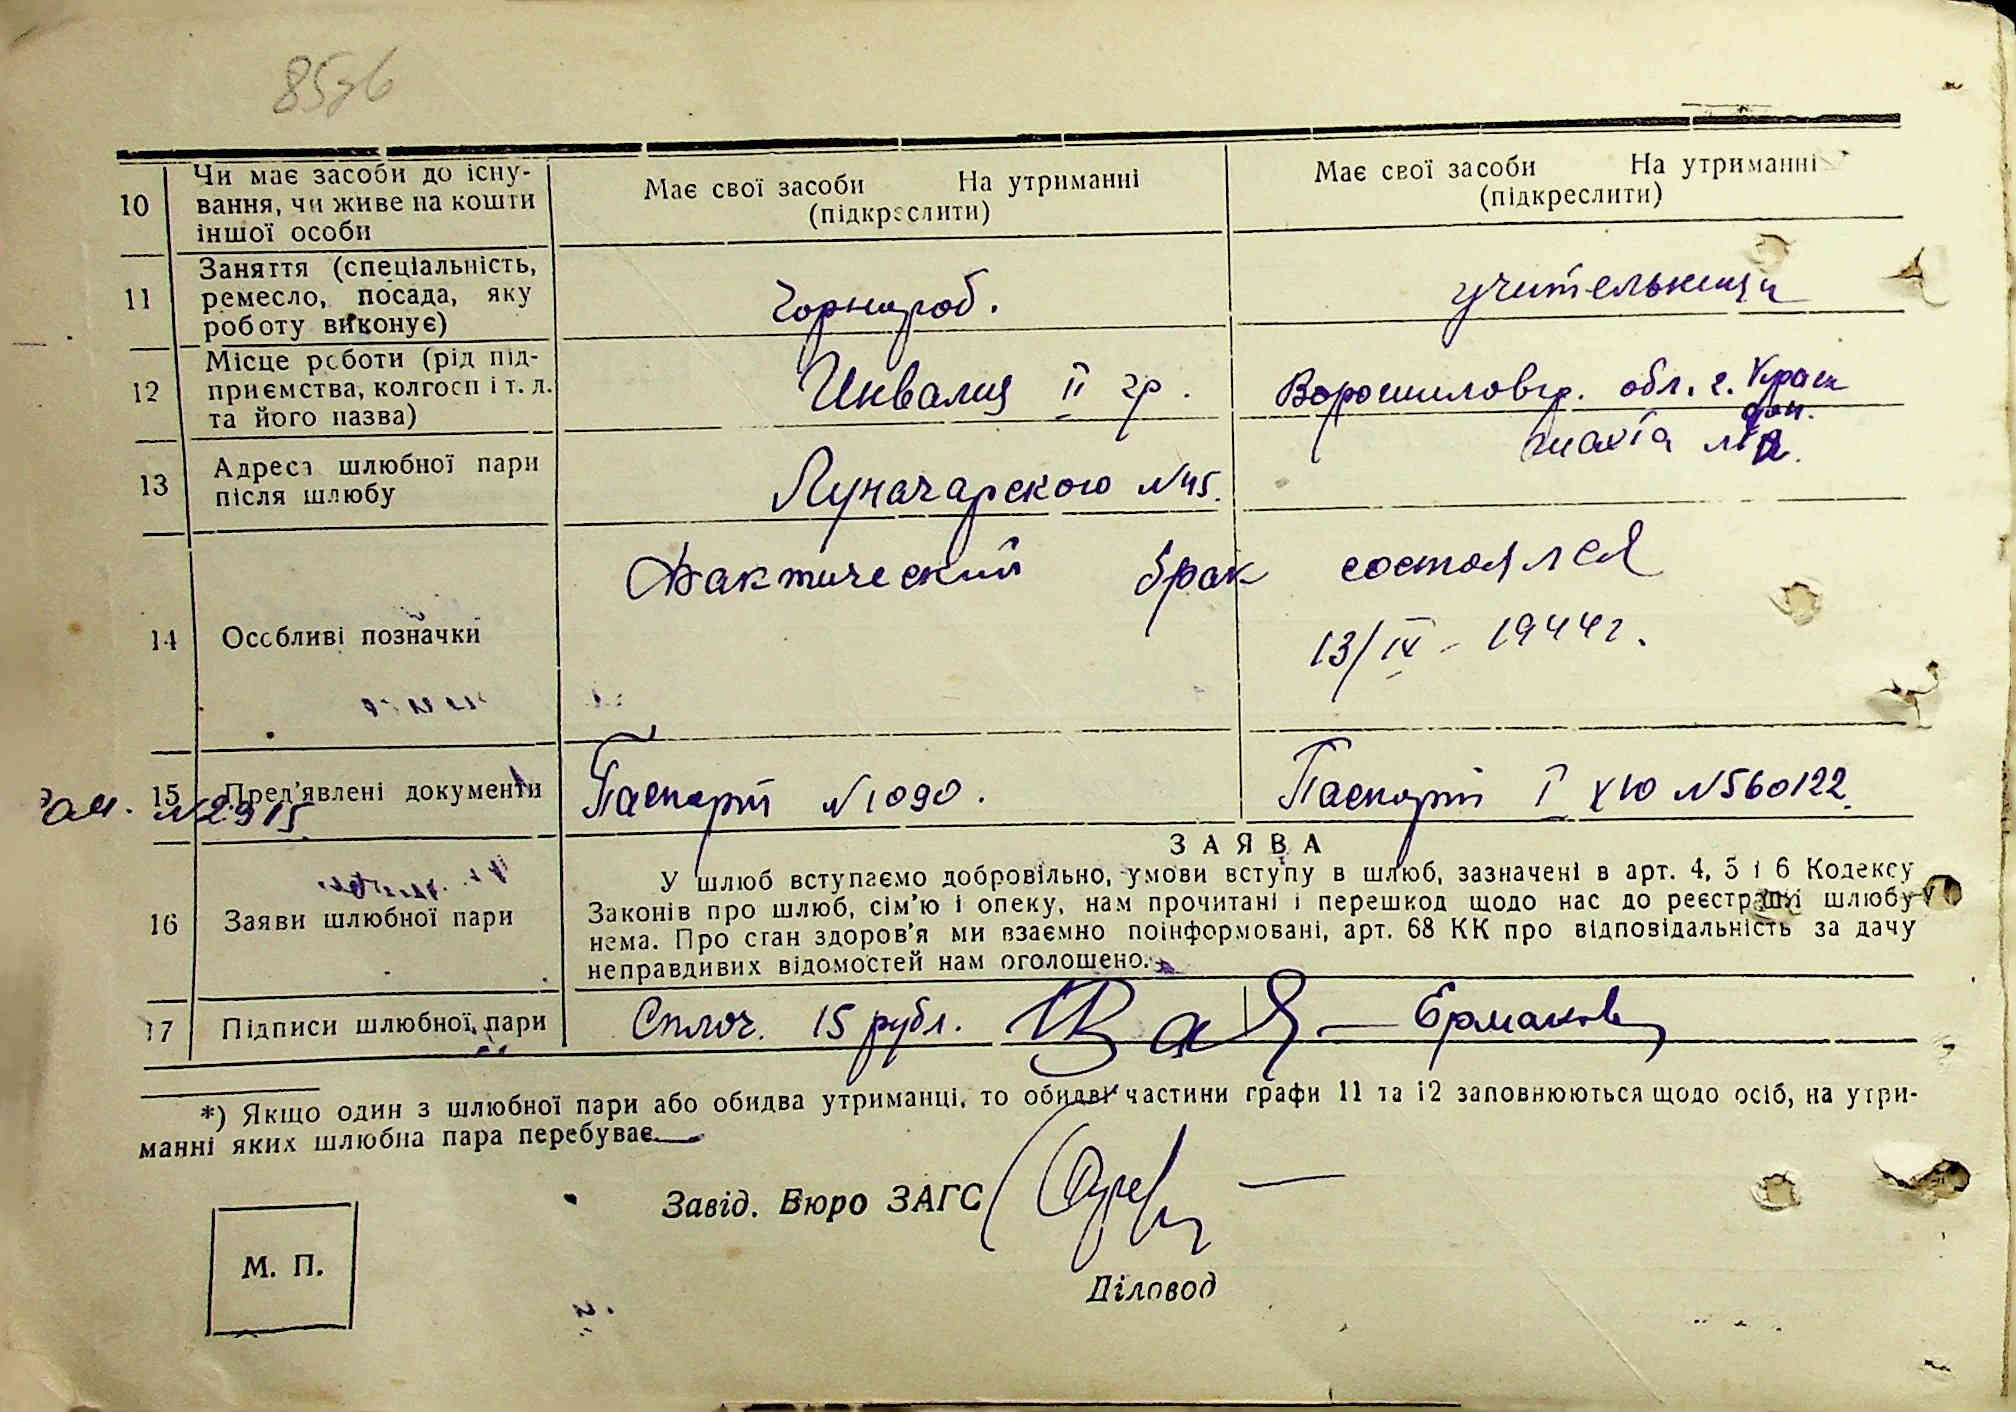 10 Чи має засоби до існу-
вання, чи живе на кошти
іншої особи
Має свої засоби На утриманні
(підкреслити)
Має свої засоби На утриманні
(підкреслити)
11 Заняття (спеціальність,
ремесло, посада, яку
роботу виконує)
Чорнороб.
учительниця
12 Місце роботи (рід під-
приємства, колгосп і т. д.
та його назва)
Инвалид II гр.
Ворошиловгр. обл. г. Красн
дон.
шахта №
13 Адреса шлюбної пари
після шлюбу
Луначарского №45.
14 Особливі позначки
Фактический брак состоялся
13/IV - 1944 г.
15 Пред'явлені документи
№2915
Паспорт №1090.
Паспорт I ХЮ №560122.
16 Заяви шлюбної пари
ЗАЯВА
У шлюб вступаємо добровільно, умови вступу в шлюб, зазначені в арт. 4, 5 і 6 Кодексу
Законів про шлюб, сім'ю і опеку, нам прочитані і перешкод щодо нас до реєстрації шлюбу
нема. Про стан здоров'я ми взаємно поінформовані, арт. 68 КК про відповідальність за дачу
неправдивих відомостей нам оголошено.
17 Підписи шлюбної пари
Сплоч. 15 рубл. Ермакова
*) Якщо один з шлюбної пари або обидва утриманці, то обидві частини графи 11 та 12 заповнюються щодо осіб, на утри-
манні яких шлюбна пара перебуває.
Завід. Бюро ЗАГС
М. П.
Діловод